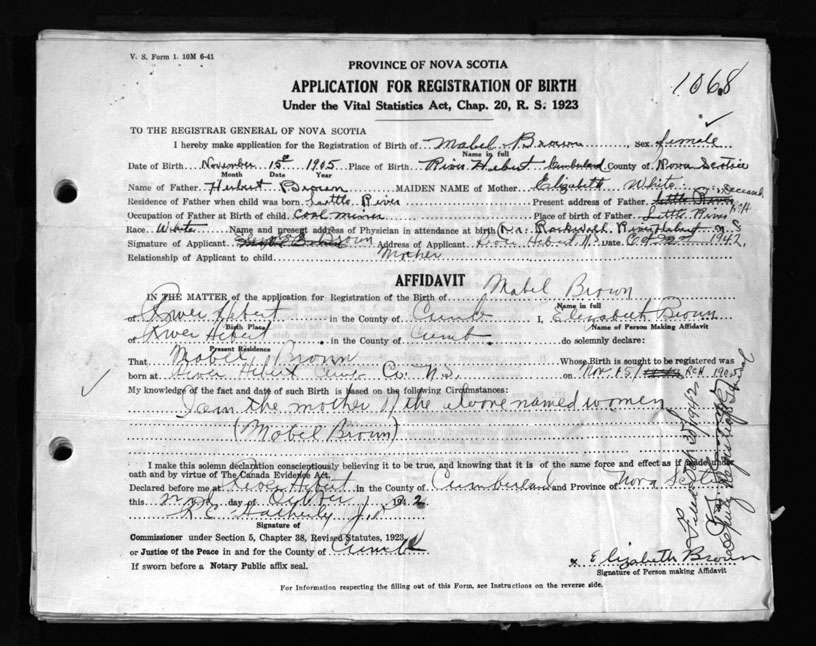 V. S. Form 1. 10M 6-41
PROVINCE OF NOVA SCOTIA
1068
APPLICATION FOR REGISTRATION OF BIRTH
Under the Vital Statistics Act, Chap. 20, R. S. 1923
TO THE REGISTRAR GENERAL OF NOVA SCOTIA
I hereby make application for the Registration of Birth of Mabel Brown, Sex female
Name in full
Date of Birth November 15th 1905 Place of Birth River Hebert Cumberland County of Nova Scotia
Month Day Year
Name of Father Herbert Brown MAIDEN NAME of Mother Elizabeth White
Residence of Father when child was born Little River Present address of Father Little River is deceased
Occupation of Father at Birth of child Coal miner Place of birth of Father Little River N S
Race White Name and present address of Physician in attendance at birth Dr. Rockwell River Hebert
Signature of Applicant Brown Address of Applicant River Hebert N.S. Date Oct 22nd 1942
Relationship of Applicant to child Mother
AFFIDAVIT
IN THE MATTER of the application for Registration of the Birth of Mabel Brown
Name in full
of River Hebert in the County of Cumb I, Elizabeth Brown
Birth Place Name of Person Making Affidavit
of River Hebert in the County of Cumb. do solemnly declare:
Present Residence
That Mabel Brown Whose Birth is sought to be registered was
born at River Hebert Cumb Co. N.S. on Nov. 15/ R.C.H. 1905
My knowledge of the fact and date of such Birth is based on the following Circumstances:
I am the mother of the above named women
(Mabel Brown)
I make this solemn declaration conscientiously believing it to be true, and knowing that it is of the same force and effect as if made under
oath and by virtue of The Canada Evidence Act.
Declared before me at River Hebert in the County of Cumberland and Province of Nova Scotia
this 22nd day of October 1942
R C Hatherly J.P.
Signature of
Commissioner under Section 5, Chapter 38, Revised Statutes, 1923,
or Justice of the Peace in and for the County of Cumb
If sworn before a Notary Public affix seal.
x Elizabeth Brown
Signature of Person making Affidavit
For Information respecting the filling out of this Form, see Instructions on the reverse side.